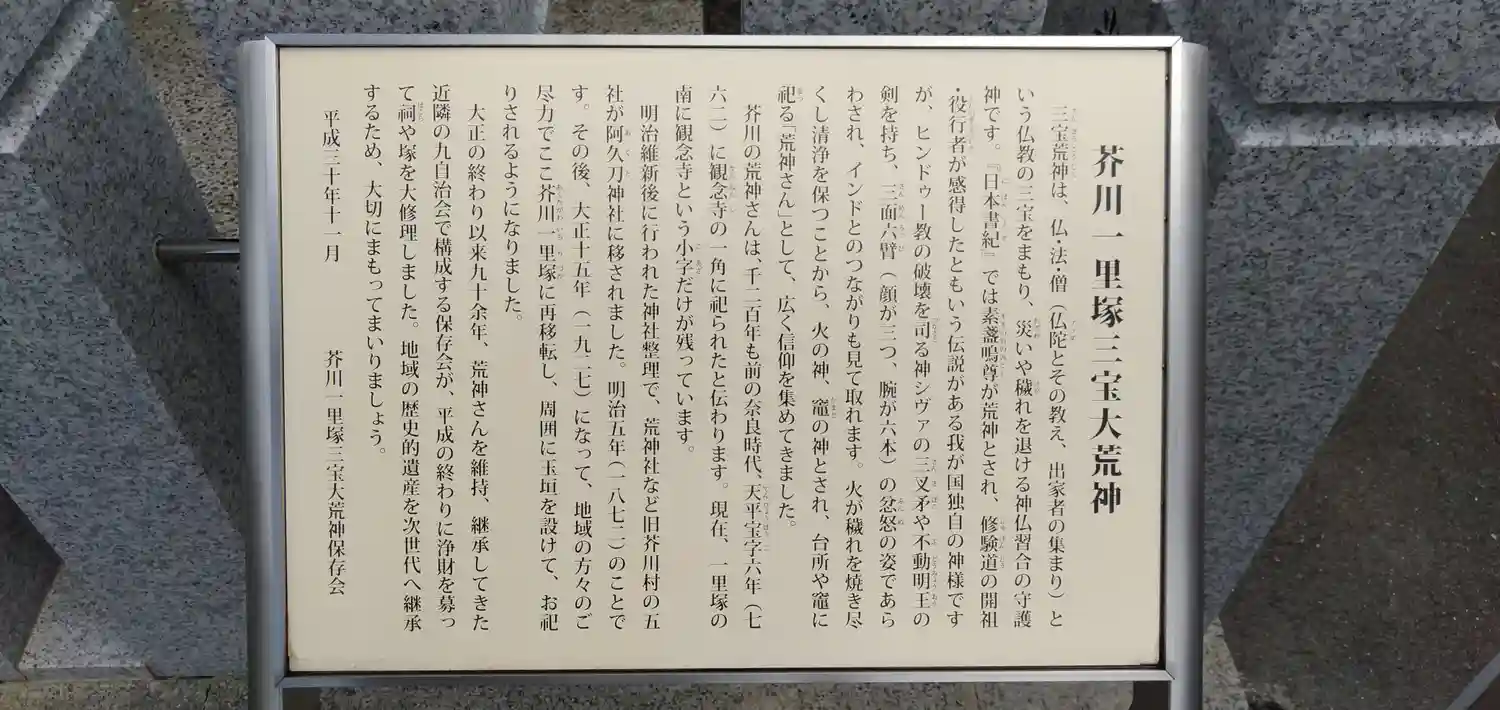 芥川一里塚三宝大荒神
三宝荒神は、仏・法・僧（仏陀とその教え、出家者の集まり）と
いう仏教の三宝をまもり、災いや穢れを退ける神仏習合の守護
神です。『日本書紀』では素盞嗚尊が荒神とされ、修験道の開祖
・役行者が感得したともいう伝説がある我が国独自の神様です
が、ヒンドゥー教の破壊を司る神シヴァの三叉矛や不動明王の
剣を持ち、三面六臂（顔が三つ、腕が六本）の忿怒の姿であら
わされ、インドとのつながりも見て取れます。火が穢れを焼き尽
くし清浄を保つことから、火の神、竈の神とされ、台所や竈に
祀る「荒神さん」として、広く信仰を集めてきました。
芥川の荒神さんは、千二百年も前の奈良時代、天平宝字六年（七
六二）に観念寺の一角に祀られたと伝わります。現在、一里塚の
南に観念寺という小字だけが残っています。
明治維新後に行われた神社整理で、荒神社など旧芥川村の五
社が阿久刀神社に移されました。明治五年（一八七二）のことで
す。その後、大正十五年（一九二七）になって、地域の方々のご
尽力でここ芥川一里塚に再移転し、周囲に玉垣を設けて、お祀
りされるようになりました。
大正の終わり以来九十余年、荒神さんを維持、継承してきた
近隣の九自治会で構成する保存会が、平成の終わりに浄財を募っ
て祠や塚を大修理しました。地域の歴史的遺産を次世代へ継承
するため、大切にまもってまいりましょう。
平成三十年十一月　　芥川一里塚三宝大荒神保存会